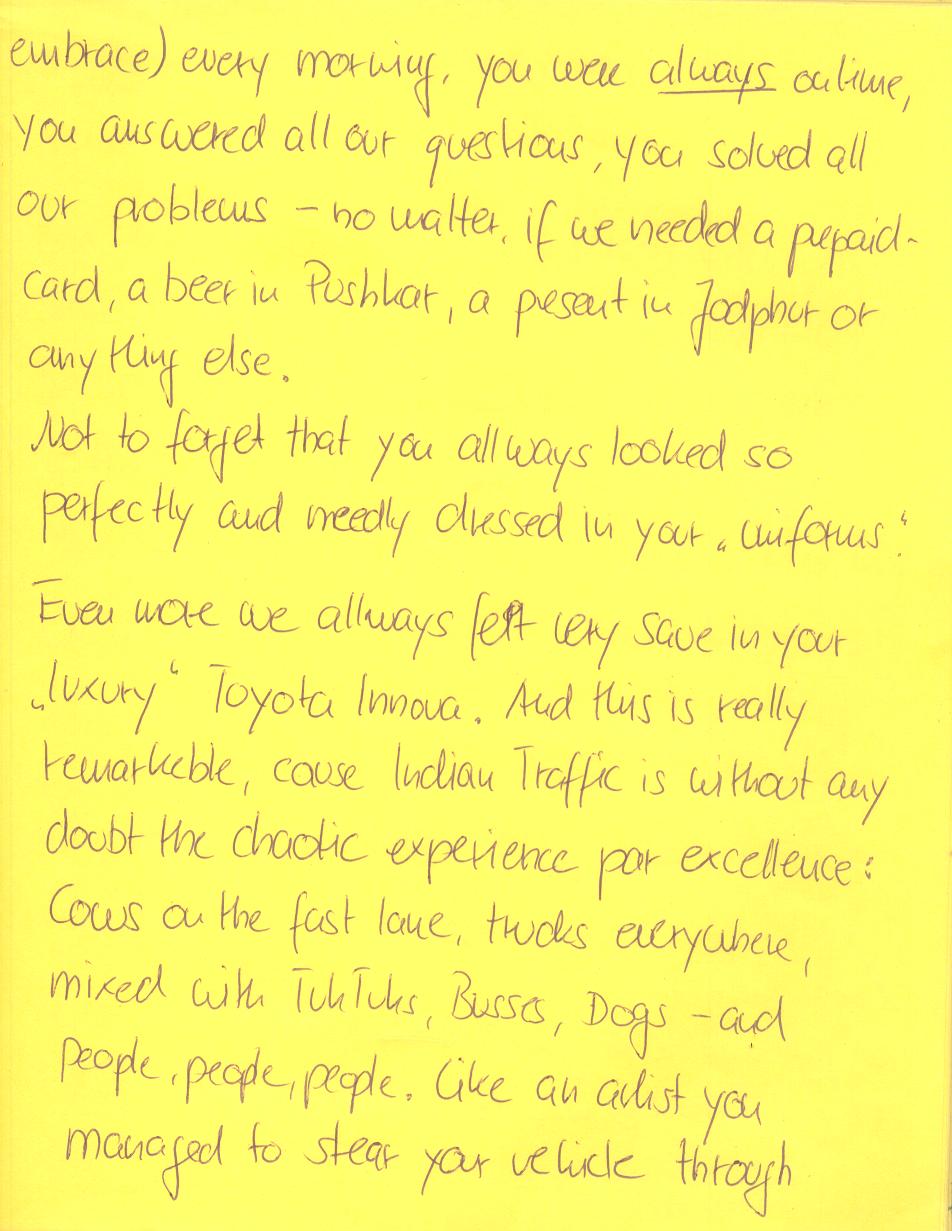 embrace) every morning, you were always ontime,
you answered all our questions, you solved all
our problems – no matter, if we needed a prepaid-
card, a beer in Pushkar, a present in Jodphur or
anything else.
Not to forget that you allways looked so
perfectly and needly dressed in your „uniforms“.
Even more we allways felt very save in your
„luxury“ Toyota Innova. And this is really
remarkeble, cause Indian Traffic is without any
doubt the chaotic experience par excellence:
Cows on the fast lane, trucks everywhere,
mixed with TukTuks, Busses, Dogs – and
people, people, people. Like an artist you
managed to stear your vehicle through